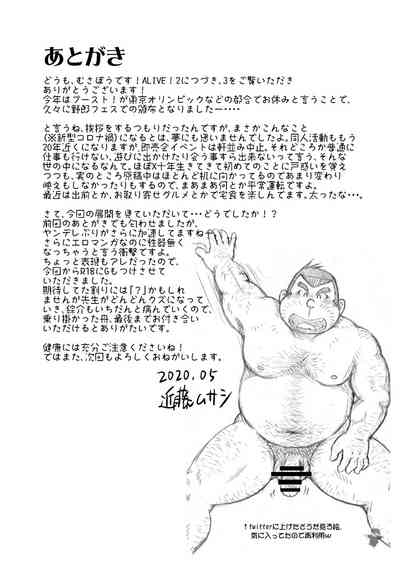 あとがき
どうも、むさぼうです！ALIVE！2につづき、3をご覧いただき
ありがとうございます！
今年はブースト！が東京オリンピックなどの都合でお休みと言うことで、
久々に野郎フェスでの頒布となりました・・・・
と言うね、挨拶をするつもりだったんですが、まさかこんなこと
(※新型コロナ禍)になるとは、夢にも思いませんでしたよ。同人活動ももう
20年近くになりますが、即売会イベントは軒並み中止。それどころか普通に
仕事も行けない、遊びに出かけたり会う事すら出来ないって言う、そんな
世の中になるなんて。ほぼX十年生きてきて初めてのことに戸惑いを覚え
つつも、実のところ原稿中はほとんど机に向かってるのであまり変わり
映えもしなかったりもするので、まあまあ何とか平常運転ですよ。
最近は出前とか、お取り寄せグルメとかで宅食を楽しんでます。太ったな・・・。
さて、今回の展開を見ていただいて・・・どうでしたか！？
前回のあとがきでも匂わせましたが、
ヤンデレぶりがさらに加速してますね
さらにエロマンガなのに性器無く
なっちゃうと言う衝撃ですよ。
ちょっと表現もアレだったので、
今回からR18にGもつけさせて
いただきました。
期待してた割りには「？」かもしれ
ませんが先生がどんどんクズになって
いき、綜介もいちだんと病んでいくので、
乗り掛かった舟、最後までお付き合い
いただけるとありがたいです。
健康には充分ご注意くださいね！
ではまた、次回もよろしくおねがいします。
2020.05
近藤ムサシ
↑twitterに上げたどうだ見ろ絵。
気に入ってたので再利用w